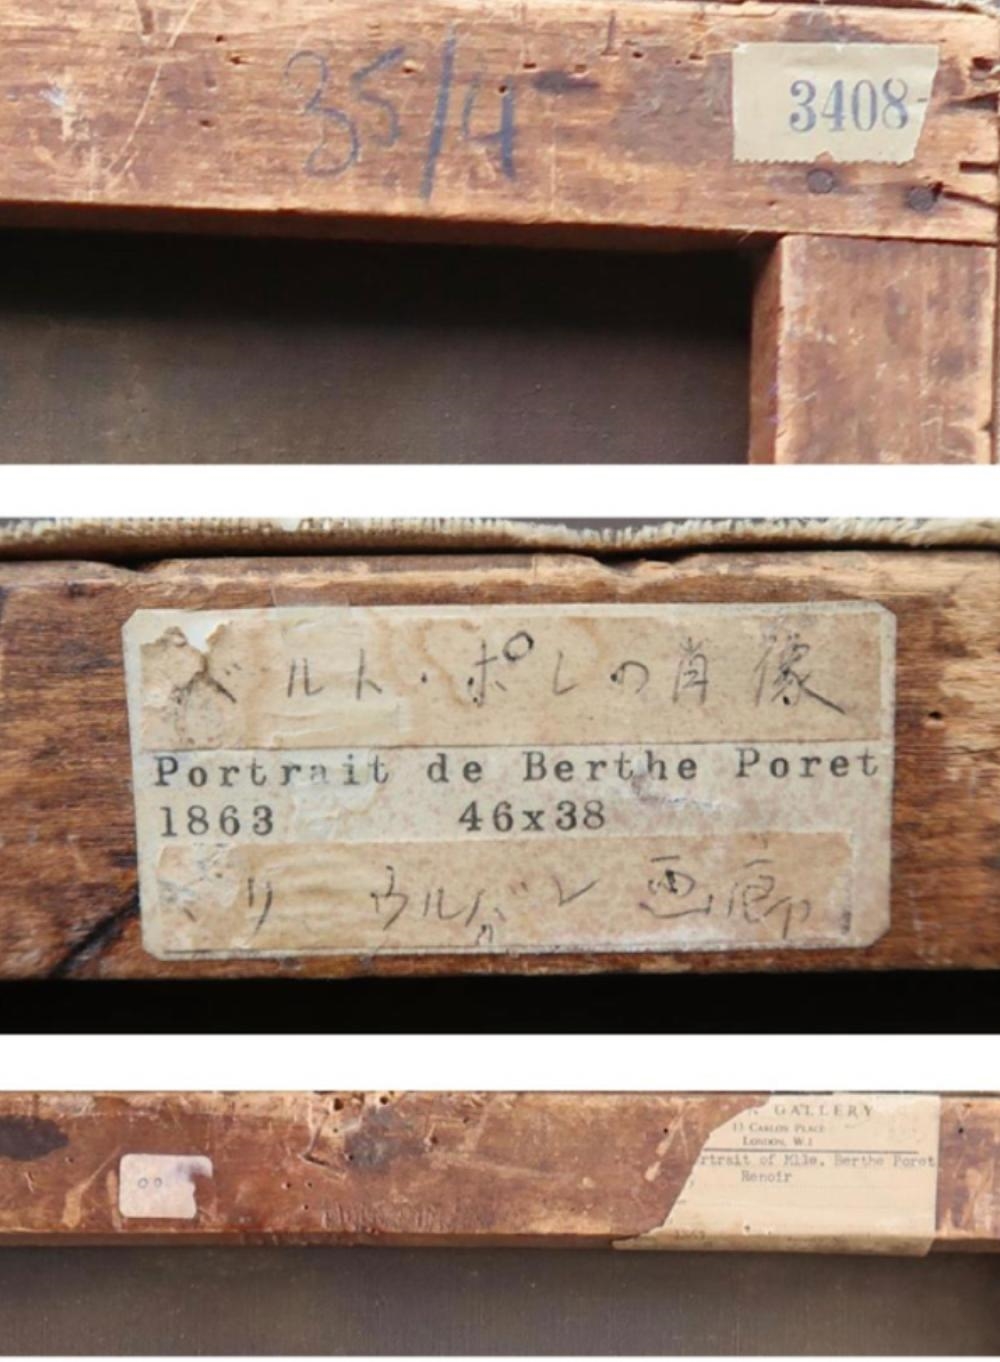 35/4
3408-
ベルト・ポレの肖像
Portrait de Berthe Poret
1863 46x38
リ ウルバン画廊
GALLERY
13 CARLOS PLACE
LONDON, W.1
rtrait of Mlle. Berthe Poret
Renoir
1863
00